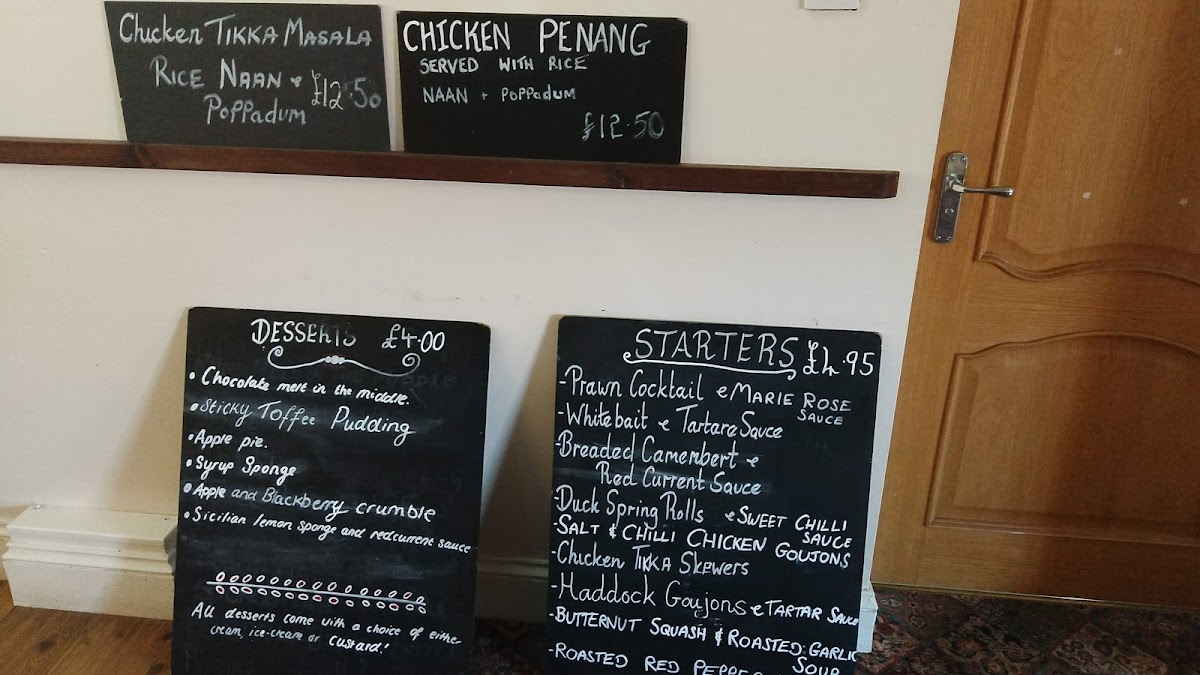 Chicken TIKKA MASALA
RICE NAAN &
POPPADUM
£12.50
CHICKEN PENANG
SERVED WITH RICE
NAAN + POPPADUM
£12.50
DESSERTS £4.00
• Chocolate melt in the middle.
• Sticky Toffee Pudding
• Apple pie.
• Syrup Sponge
• Apple and Blackberry crumble
• Sicilian lemon sponge and redcurrent sauce
All desserts come with a choice of either
cream, ice-cream or custard!
STARTERS £4.95
- Prawn Cocktail & MARIE ROSE
SAUCE
- Whitebait & Tartare Sauce
- Breaded Camembert &
Red Current Sauce
- Duck Spring Rolls & SWEET CHILLI
SAUCE
- SALT & CHILLI CHICKEN GOUJONS
- Chicken TIKKA SKEWERS
- Haddock Goujons & TARTAR SAUCE
- BUTTERNUT SQUASH & ROASTED GARLIC
SOUP
- ROASTED RED